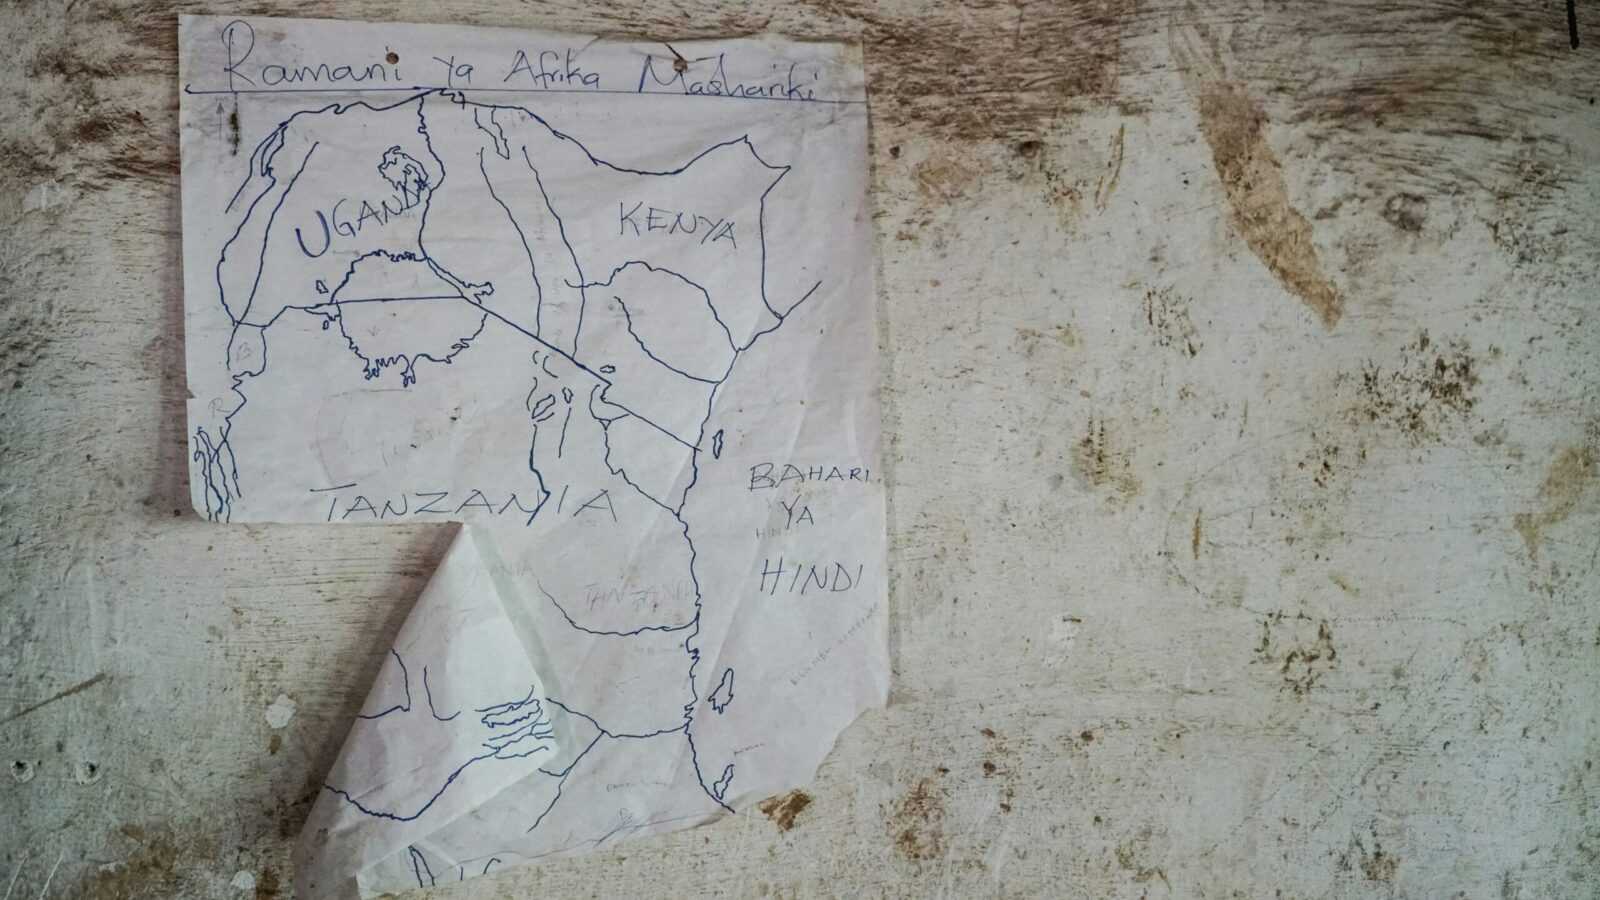 Ramani ya Afrika Mashariki
UGANDA
KENYA
B
R
TANZANIA
BAHARI
YA
HINDI
TANZANIA